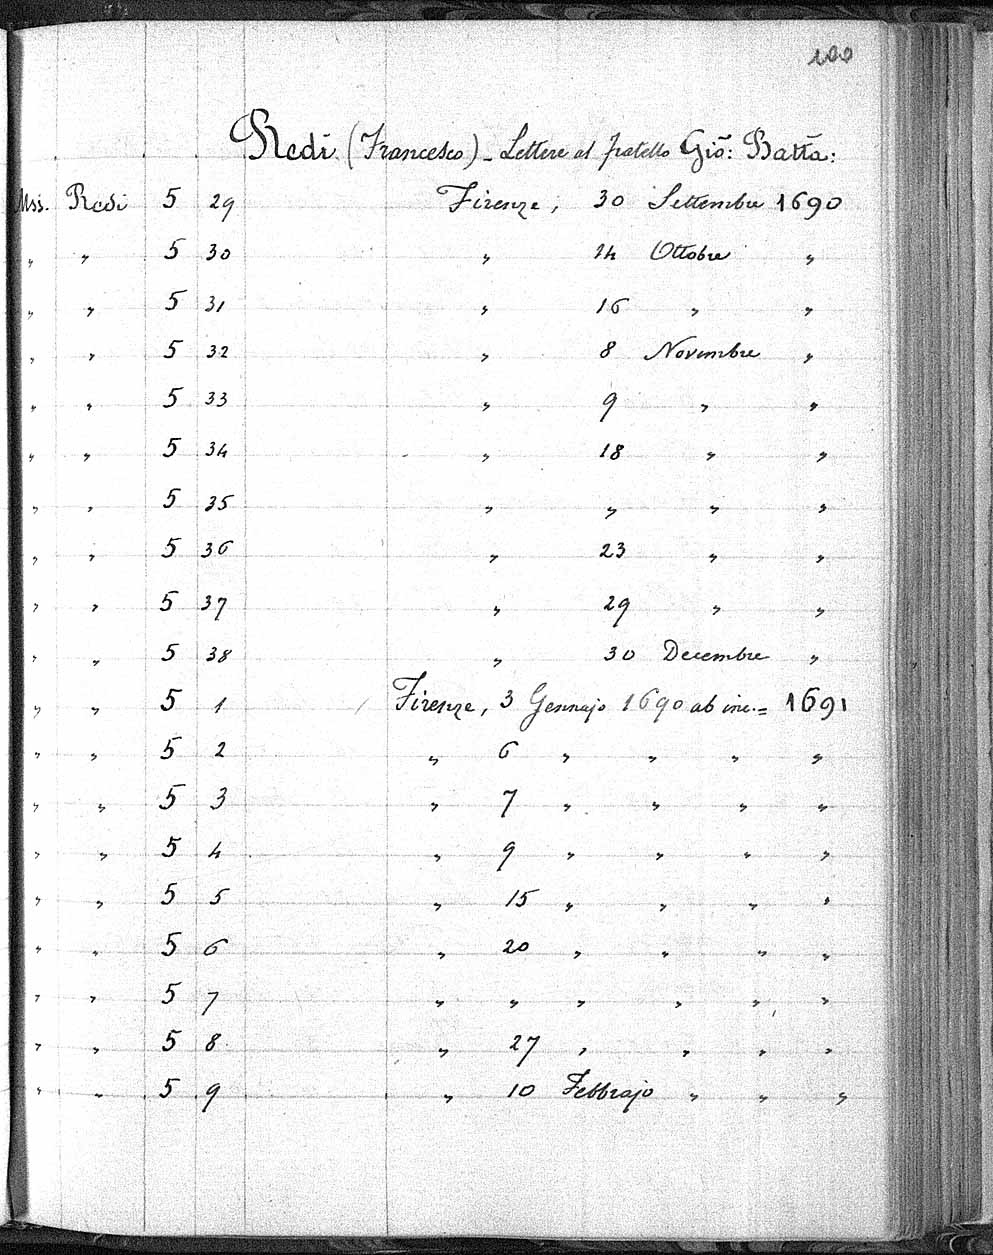 100
Redi (Francesco) - Lettere al fratello Giō: Battā:
Mss. Redi 5 29 Firenze, 30 Settembre 1690
" " 5 30 " 14 Ottobre "
" " 5 31 " 16 " "
" " 5 32 " 8 Novembre "
" " 5 33 " 9 " "
" " 5 34 " 18 " "
" " 5 35 " " " "
" " 5 36 " 23 " "
" " 5 37 " 29 " "
" " 5 38 " 30 Decembre "
" " 5 1 Firenze, 3 Gennajo 1690 ab inc. = 1691
" " 5 2 " 6 " " " "
" " 5 3 " 7 " " " "
" " 5 4 " 9 " " " "
" " 5 5 " 15 " " " "
" " 5 6 " 20 " " " "
" " 5 7 " " " " " "
" " 5 8 " 27 " " " "
" " 5 9 " 10 Febbrajo " " "